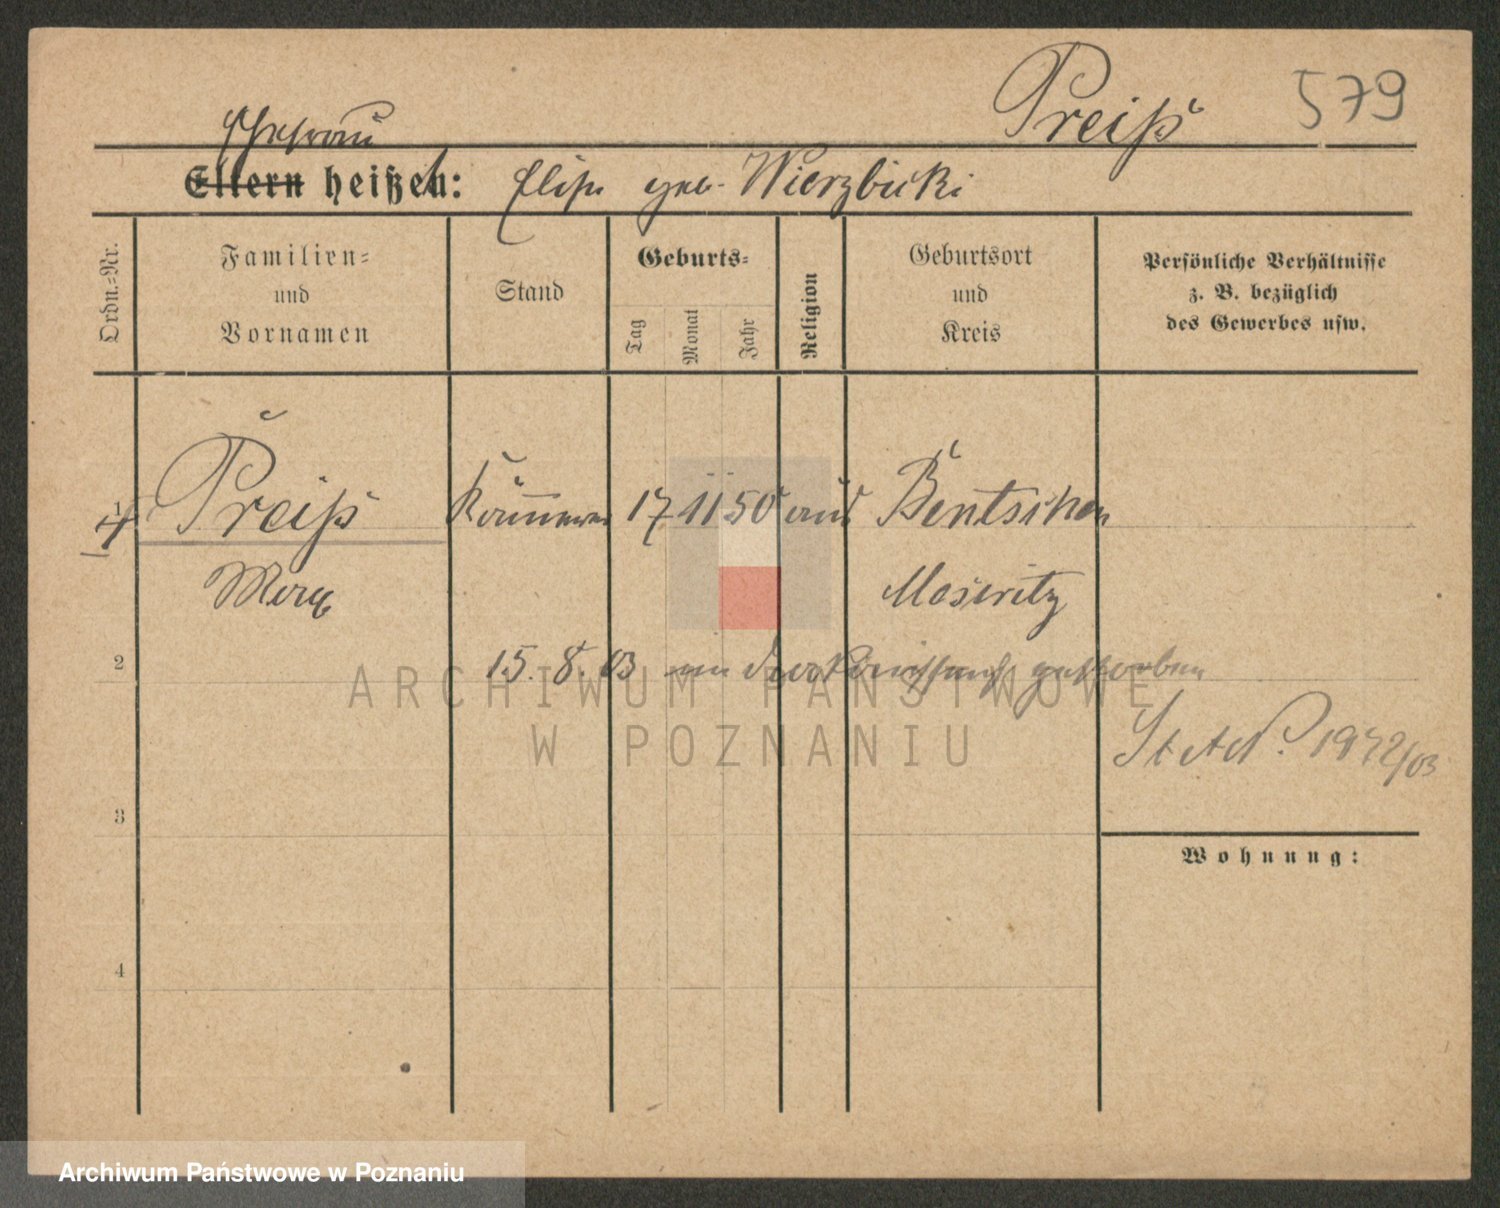 Preiß 579
Ehefrau
Eltern heißen: Elise geb. Wierzbicki
Ordn.=Nr.
Familien=
und
Vornamen
Stand
Geburts=
Tag
Monat
Jahr
Religion
Geburtsort
und
Kreis
Persönliche Verhältnisse
z. B. bezüglich
des Gewerbes usw.
1 Preiß 17 11 50 Bentschen
Meseritz
2 15. 8. 03 gestorben
ARCHIWUM PAŃSTWOWE
W POZNANIU
3
Wohnung:
4
Archiwum Państwowe w Poznaniu